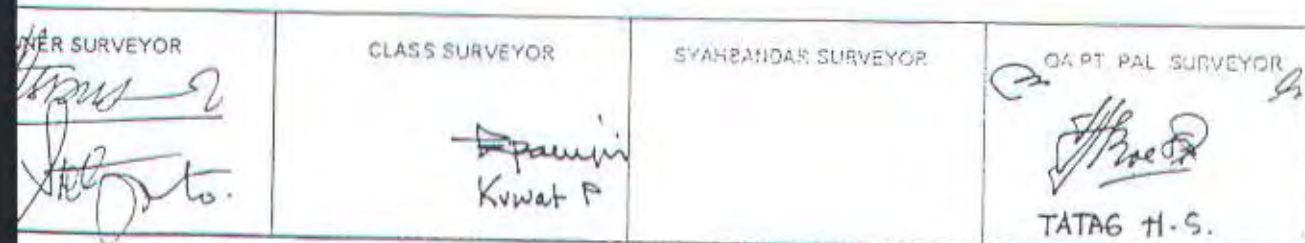 NER SURVEYOR
CLASS SURVEYOR
SYAHBANDAR SURVEYOR
QA PT PAL SURVEYOR
Kuwat P
TATAG H.S.